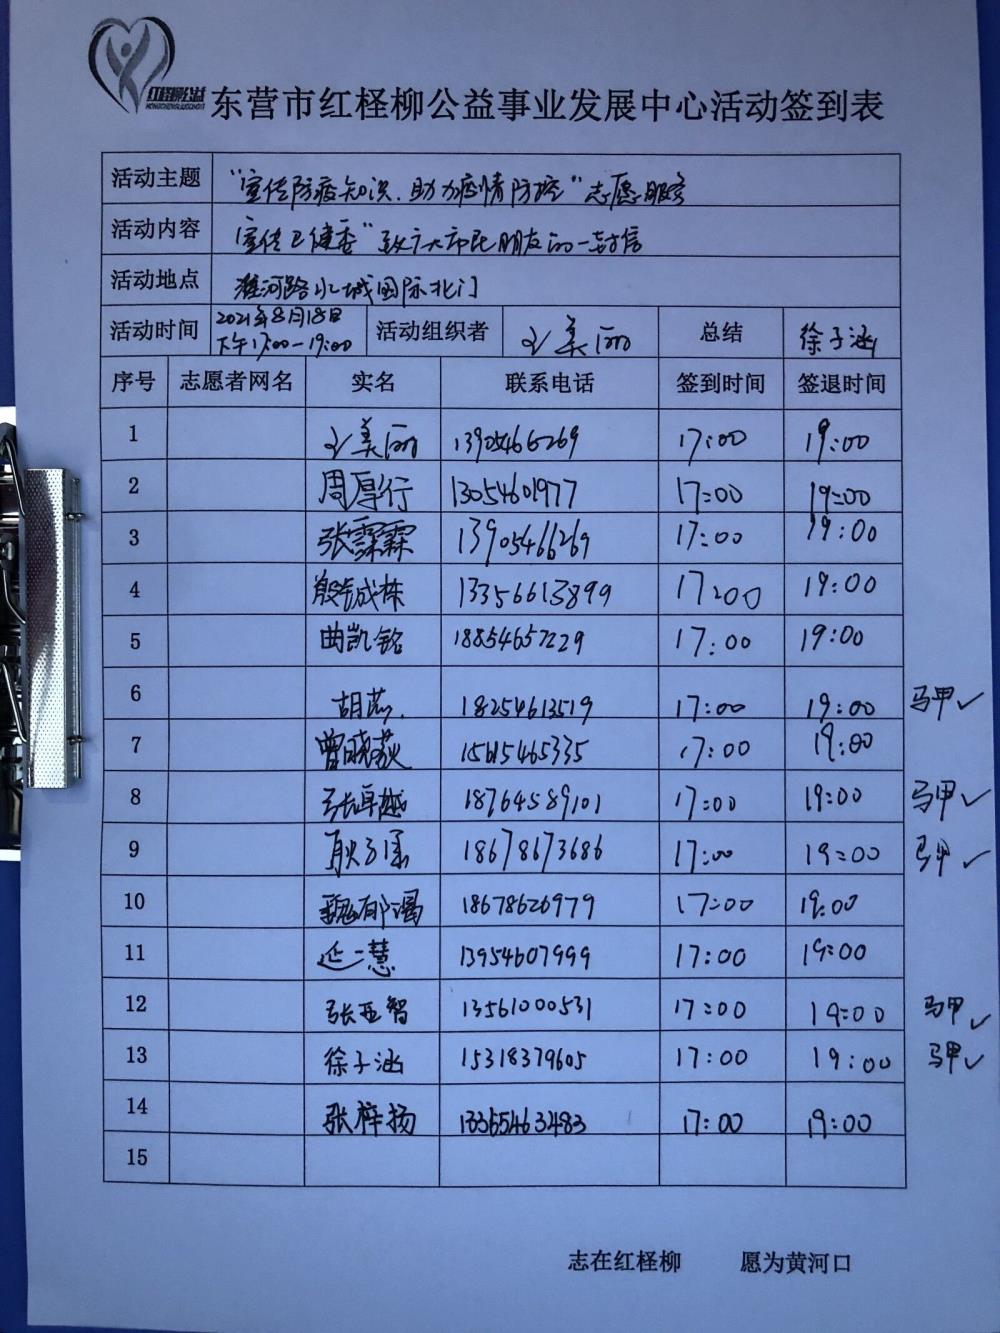 红柽柳公益
HONGCHENGLIUGONGYI
东营市红柽柳公益事业发展中心活动签到表
活动主题 “宣传防疫知识、助力疫情防控”志愿服务
活动内容 宣传卫健委“致广大市民朋友的一封信
活动地点 淮河路水城国际北门
活动时间 2021年8月18日 下午17:00-19:00 活动组织者 王美丽 总结 徐子涵
序号 志愿者网名 实名 联系电话 签到时间 签退时间
1 王美丽 13905466269 17:00 19:00
2 周厚行 13054601977 17:00 19:00
3 张霖霖 13905466269 17:00 19:00
4 殷成栋 13356613899 17:00 19:00
5 曲凯铭 18854657229 17:00 19:00
6 胡燕 18254613519 17:00 19:00 马甲✓
7 曾晓荻 15615465335 17:00 19:00
8 张卓越 18764589101 17:00 19:00 马甲✓
9 耿子漾 18678673686 17:00 19:00 马甲✓
10 魏郁 18678626979 17:00 19:00
11 延一慧 13954607999 17:00 19:00
12 张亚智 13561000531 17:00 19:00 马甲✓
13 徐子涵 15318379605 17:00 19:00 马甲✓
14 张梓扬 13365463483 17:00 19:00
15
志在红柽柳 愿为黄河口